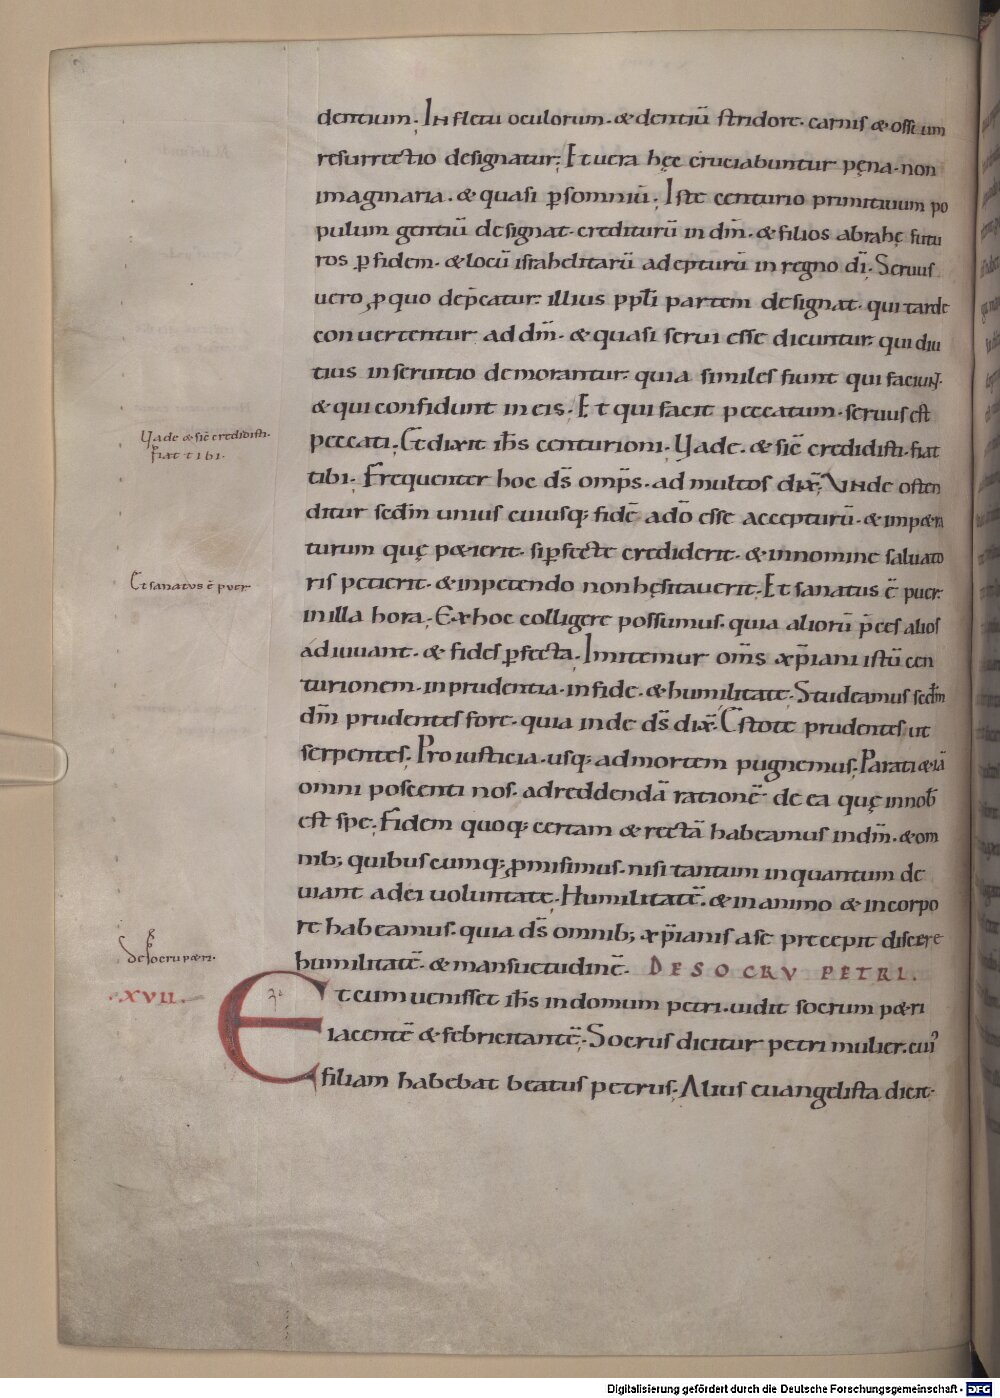 dentium. In fletu oculorum. & dentiū stridore. carnis & ossium
resurrectio designatur; Et uera hęc cruciabuntur pęna. non
imaginaria. & quasi ꝑ somniū. Iste centurio primitiuum po
pulum gentiū designat. crediturū in dn̄m. & filios abrahę futu
ros ꝑ fidem. & locū israhelitarū adepturū in regno dī. Seruus
uero, ꝓ quo dep̄catur. illius pp̄li partem designat. qui tarde
conuertentur ad dn̄m. & quasi serui esse dicuntur. qui diu
tius in seruitio demorantur. quia similes fiunt qui faciunt.
& qui confidunt in eis. Et qui facit peccatum. seruus est
peccati. Et dixit ih̄s centurioni. Uade. & sic̄ credidisti. fiat
tibi. Frequenter hoc dс̄ omp̄s. ad multos dix̄. Vnde osten
ditur secd̄m unius cuiusq; fidē a dō esse accepturū. & impetra
turum quę petierit. si ꝑfecte crediderit. & in nomine saluato
ris petierit. & in petendo non hęsitauerit. Et sanatus ē puer.
in illa hora. Ex hoc colligere possumus. quia aliorū p̄ces alios
adiuuant. & fides ꝑfecta. Imitemur om̄s xp̄iani istū cen
turionem. in prudentia. in fide. & humilitate. Studeamus secd̄m
dn̄m prudentes fore. quia inde ds̄ dix̄. Estote prudentes ut
serpentes. Pro iusticia. usq; ad mortem pugnemus. Parati & iā
omni poscenti nos. ad reddendā rationē de ea quę in nob̄
est spe. Fidem quoq; certam & rectā habeamus in dn̄m. & om
nib; quibuscumq; ꝓmisimus. nisi tantum in quantum de
uiant a dei uoluntate. Humilitatē. & in animo & in corpo
re habeamus. quia ds̄ omnib; xp̄ianis a se precepit discere
humilitatē. & mansuetudinē. DE SOCRV PETRI.
Et cum uenisset ih̄s in domum petri. uidit socrum petri
iacentē & febricitantē. Socrus dicitur petri mulier. cui᾽
filiam habebat beatus petrus. Alius euangelista dicit.
Uade & sic̄ credidisti.
fiat tibi.
Et sanatus ē puer.
De socru petri.
.XVII.
Digitalisierung gefördert durch die Deutsche Forschungsgemeinschaft - DFG